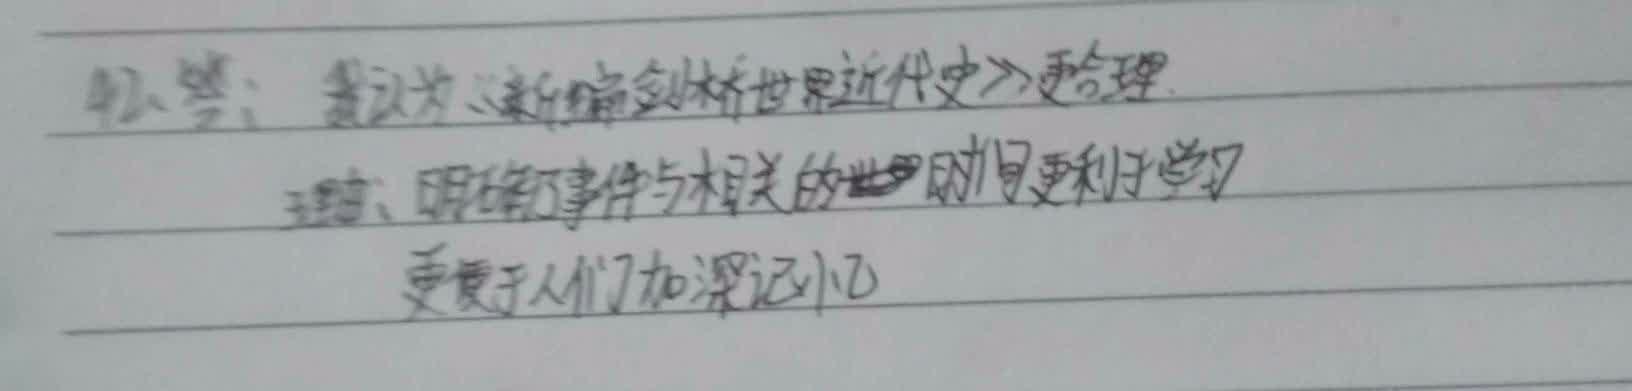 42、答：我认为《新编剑桥世界近代史》更合理.
理由、明确了事件与相关的时间更利于学习
更便于人们加深记忆